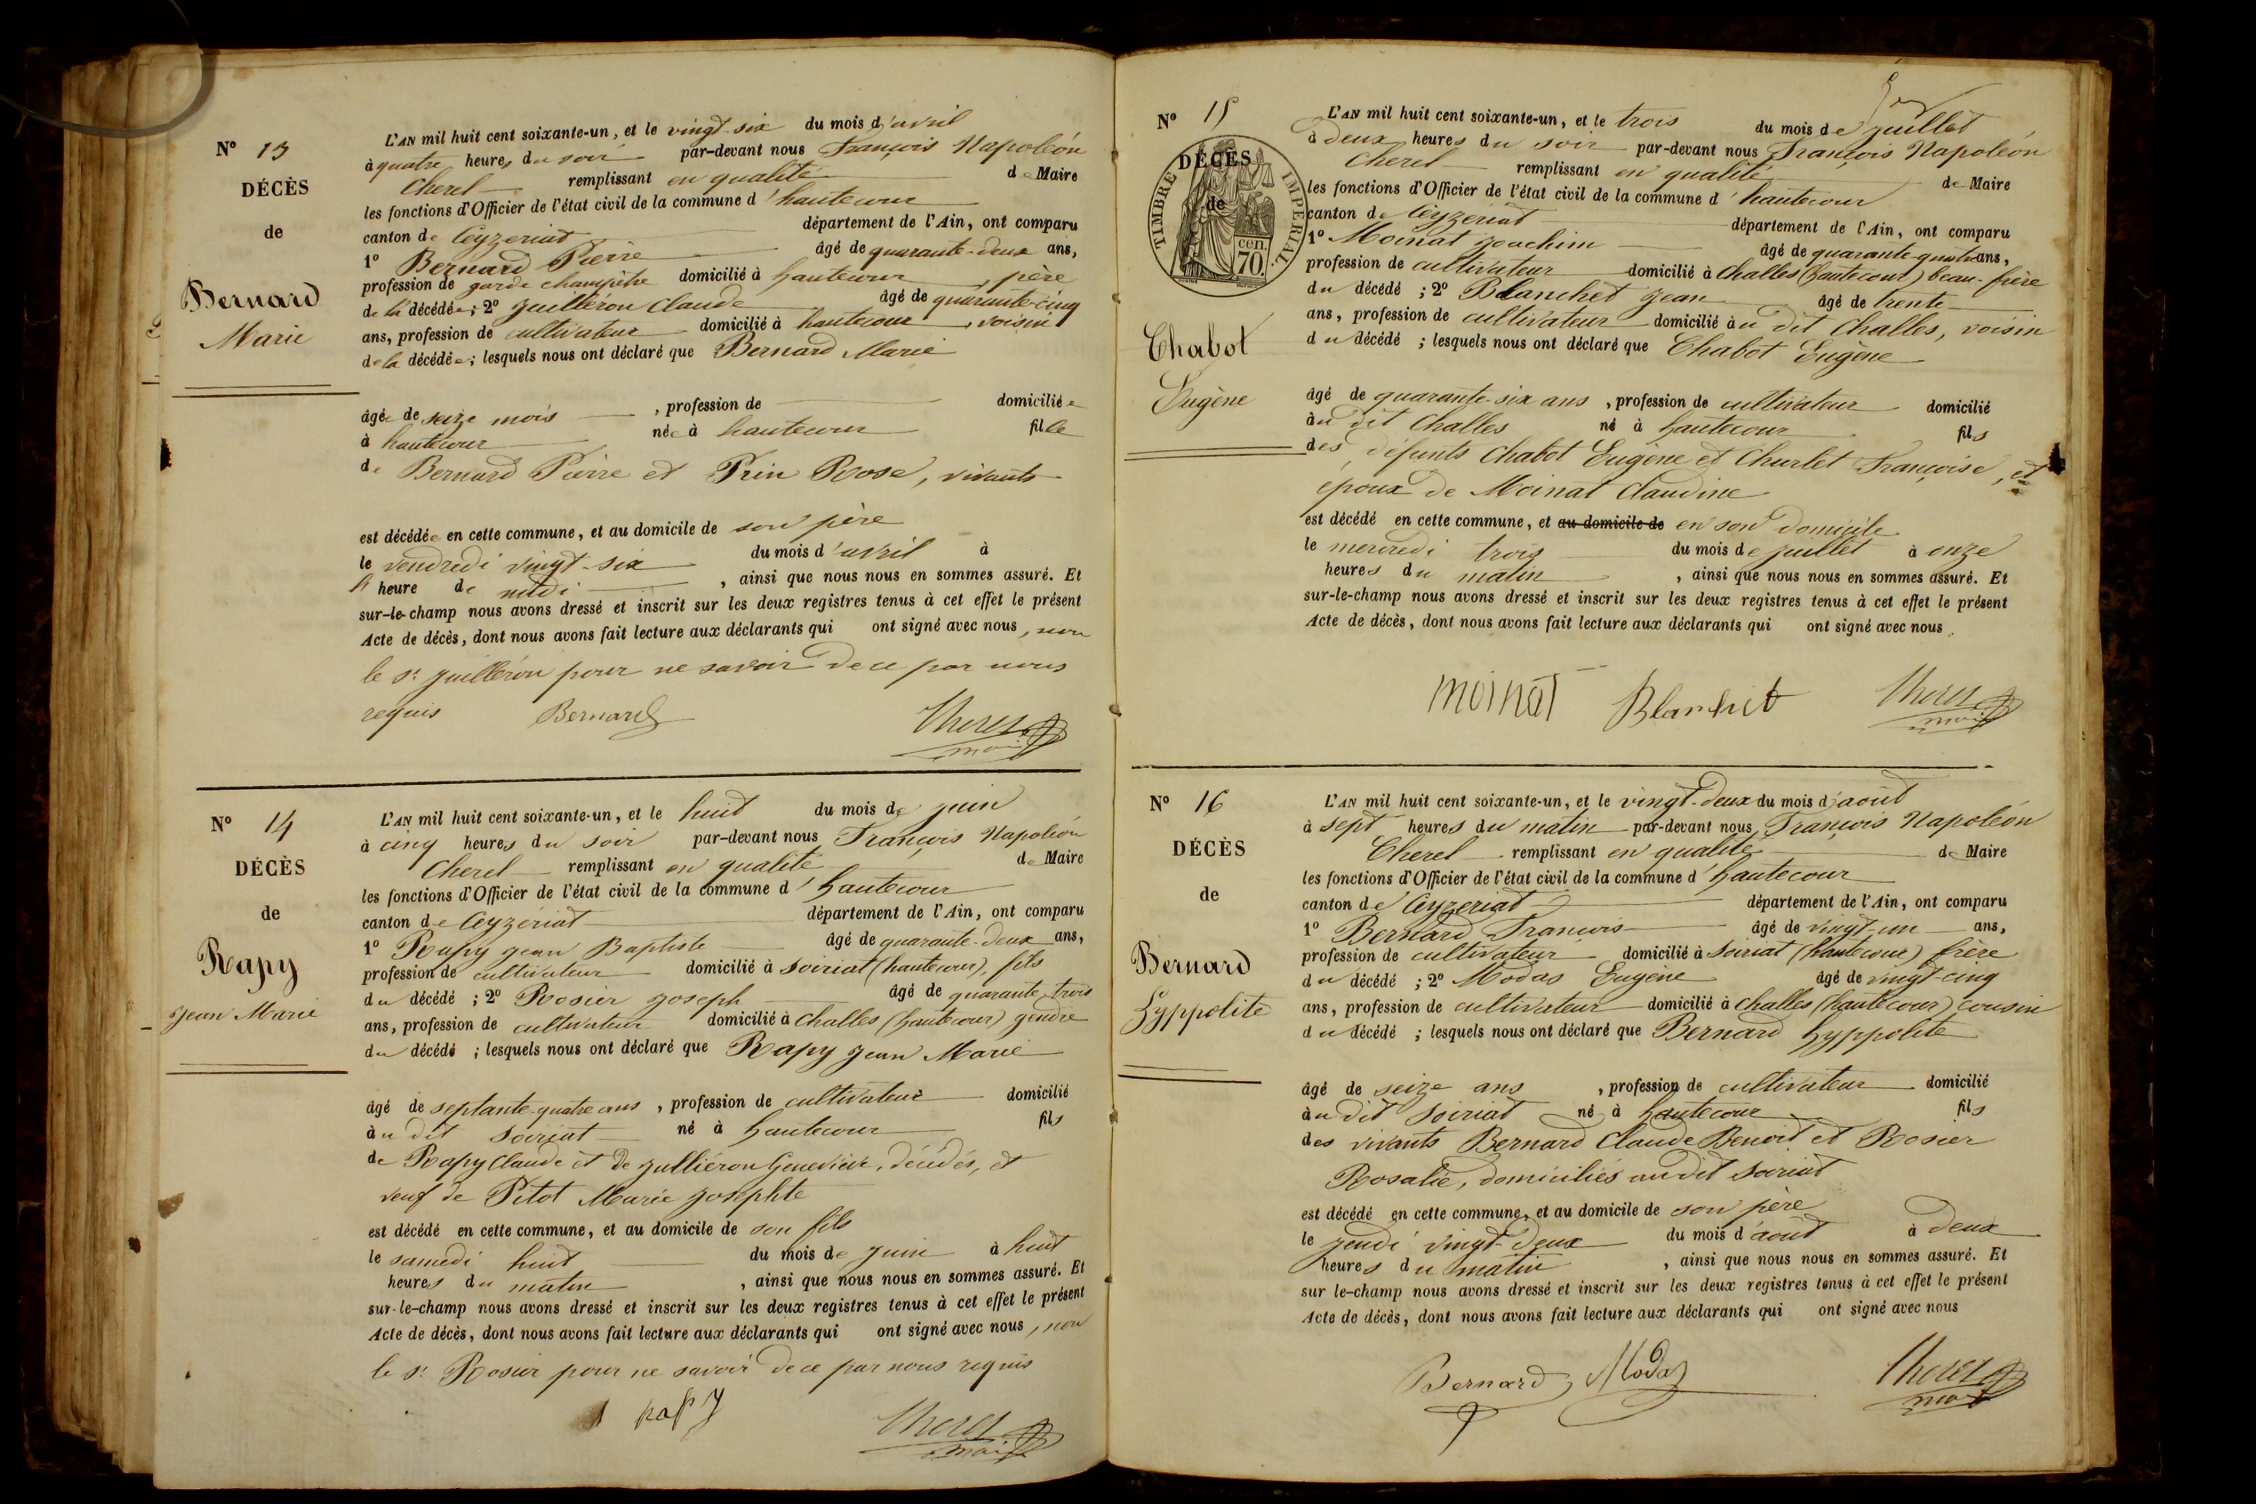 N° 13
DÉCÈS
de
Bernard
Marie
L'AN mil huit cent soixante-un, et le vingt-six du mois d'avril
à quatre heures du soir par-devant nous François Napoléon
Cherel remplissant en qualité de Maire
les fonctions d'Officier de l'état civil de la commune d'hautecour
canton de Ceyzeriat département de l'Ain, ont comparu
1° Bernard Pierre âgé de quarante-deux ans,
profession de garde champêtre domicilié à hautecour, père
de la décédée; 2° Juilléron Claude âgé de quarante-cinq
ans, profession de cultivateur domicilié à hautecour, voisin
de la décédée; lesquels nous ont déclaré que Bernard Marie
âgée de seize mois, profession de domiciliée
à hautecour née à hautecour fille
de Bernard Pierre et Prin Rose, vivants
est décédée en cette commune, et au domicile de son père
le vendredi vingt-six du mois d'avril à
l'heure de midi, ainsi que nous nous en sommes assuré. Et
sur-le-champ nous avons dressé et inscrit sur les deux registres tenus à cet effet le présent
Acte de décès, dont nous avons fait lecture aux déclarants qui ont signé avec nous, non
le Sr Juilléron pour ne savoir de ce par nous
requis Bernard Cherel
maire
N° 14
DÉCÈS
de
Rapy
Jean Marie
L'AN mil huit cent soixante-un, et le huit du mois de juin
à cinq heures du soir par-devant nous François Napoléon
Cherel remplissant en qualité de Maire
les fonctions d'Officier de l'état civil de la commune d'hautecour
canton de Ceyzériat département de l'Ain, ont comparu
1° Rapy Jean Baptiste âgé de quarante-deux ans,
profession de cultivateur domicilié à Soiriat (hautecour), fils
du décédé; 2° Rosier Joseph âgé de quarante-trois
ans, profession de cultivateur domicilié à Challes (hautecour) gendre
du décédé; lesquels nous ont déclaré que Rapy Jean Marie
âgé de septante-quatre ans, profession de cultivateur domicilié
àu dit Soiriat né à hautecour fils
de Rapy Claude et de Julliéron Geneviève, décédés, et
veuf de Pitot Marie Josephte
est décédé en cette commune, et au domicile de son fils
le samedi huit du mois de juin à huit
heures du matin, ainsi que nous nous en sommes assuré. Et
sur-le-champ nous avons dressé et inscrit sur les deux registres tenus à cet effet le présent
Acte de décès, dont nous avons fait lecture aux déclarants qui ont signé avec nous, non
le Sr Rosier pour ne savoir de ce par nous requis
rapy Cherel
maire
N° 15
DÉCÈS
de
TIMBRE IMPERIAL
70 cen.
Chabot
Eugène
L'AN mil huit cent soixante-un, et le trois du mois de juillet
à deux heures du soir par-devant nous François Napoléon
Cherel remplissant en qualité de Maire
les fonctions d'Officier de l'état civil de la commune d'hautecour
canton de Ceyzeriat département de l'Ain, ont comparu
1° Moinat Joachim âgé de quarante-quatre ans,
profession de cultivateur domicilié à Challes (hautecour) beau-frère
du décédé; 2° Blanchet Jean âgé de trente
ans, profession de cultivateur domicilié àu dit Challes, voisin
du décédé; lesquels nous ont déclaré que Chabot Eugène
âgé de quarante-six ans, profession de cultivateur domicilié
àu dit Challes né à hautecour fils
des défunts Chabot Eugène et Churlet Françoise, et
époux de Moinat Claudine
est décédé en cette commune, et au domicile de en son domicile
le mercredi trois du mois de juillet à onze
heures du matin, ainsi que nous nous en sommes assuré. Et
sur-le-champ nous avons dressé et inscrit sur les deux registres tenus à cet effet le présent
Acte de décès, dont nous avons fait lecture aux déclarants qui ont signé avec nous.
moinat Blanchet Cherel
maire
N° 16
DÉCÈS
de
Bernard
hyppolite
L'AN mil huit cent soixante-un, et le vingt-deux du mois d'août
à sept heures du matin par-devant nous François Napoléon
Cherel remplissant en qualité de Maire
les fonctions d'Officier de l'état civil de la commune d'hautecour
canton de Ceyzeriat département de l'Ain, ont comparu
1° Bernard François âgé de vingt-un ans,
profession de cultivateur domicilié à Soiriat (hautecour) frère
du décédé; 2° Modas Eugène âgé de vingt-cinq
ans, profession de cultivateur domicilié à Challes (hautecour) cousin
du décédé; lesquels nous ont déclaré que Bernard hyppolite
âgé de seize ans, profession de cultivateur domicilié
àu dit Soiriat né à hautecour fils
des vivants Bernard Claude Benoit et Rosier
Rosalie, domiciliés audit Soiriat
est décédé en cette commune, et au domicile de son père
le jeudi vingt-deux du mois d'août à deux
heures du matin, ainsi que nous nous en sommes assuré. Et
sur le-champ nous avons dressé et inscrit sur les deux registres tenus à cet effet le présent
Acte de décès, dont nous avons fait lecture aux déclarants qui ont signé avec nous
Bernard Modas Cherel
maire